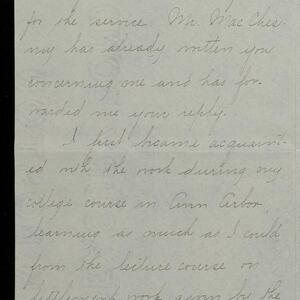 for the service. Mr. Mac Ches-
ney has already written you
concerning me and has for-
warded me your reply.
I first became acquaint-
ed with the work during my
college course in Ann Arbor,
learning as much as I could
from the lecture course on
settlement work given by the